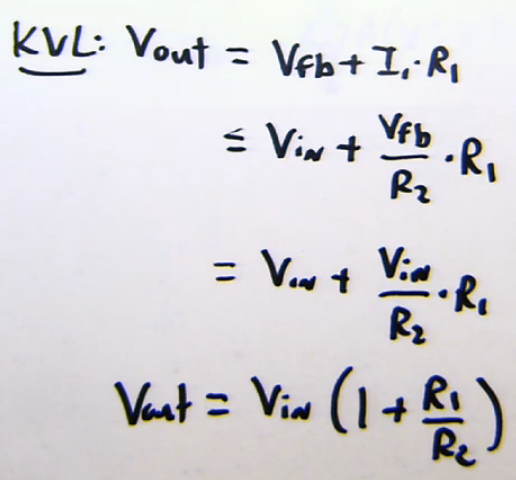 KVL: Vout = Vfb + I₁·R₁
≤ Vin + Vfb/R₂ ·R₁
= Vin + Vin/R₂ ·R₁
Vout = Vin (1 + R₁/R₂)